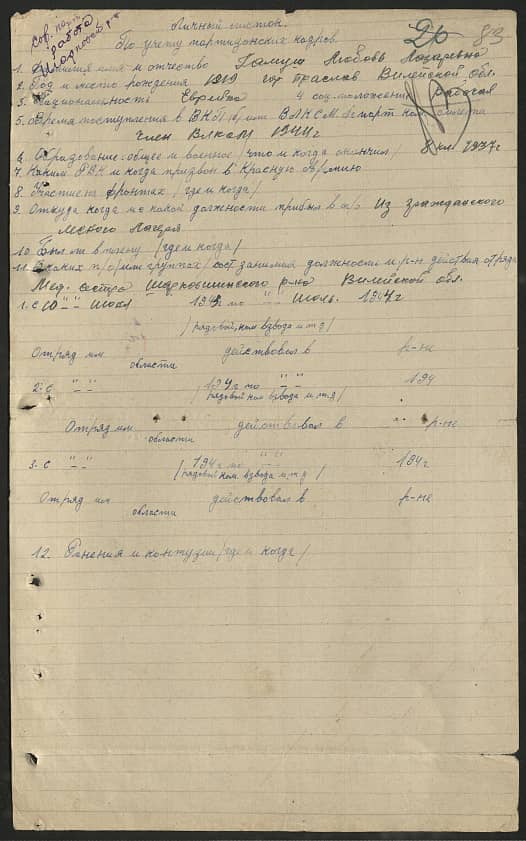 Сов. парт.
работа
Шарковщ. р-н
Личный листок.
По учету партизанских кадров.
20 83
1. Фамилия имя и отчество Галмуш Любовь Лазаревна
2. Год и место рождения 1919 гор Браслав Вилейской обл.
3. Национальность Еврейка 4 соц. положение рабочая
5. Время поступления в ВКП/б/ или ВЛКСМ № парт ком. билета
член ВЛКСМ 1944 г
6. Образование общее и военное /что и когда окончил/ 8 кл 1937 г
7. Каким РВК и когда призван в Красную Армию
8. Участие на фронтах /где и когда/
9. Откуда когда и с какой должности прибыл в п/о Из гражданского
лесного лагеря
10. Был ли в плену /где и когда/
11. В каких п/о/или группах/ сост занимая должности и р-н действия отряда
Мед. сестра Шарковшинского р-на Вилейской обл.
1. с 10 "-" июля 1943 по "-" июль. 1944 г
/рядовой, ком взвода и т д/
Отряд им области действовал в р-не
2. с "-" 194 г по "-" 194
/рядовой ком взвода и т.д/
Отряд им области действовал в р-не
3. с "-" 194 г по "-" 194 г
/рядовой, ком. взвода и т. д/
Отряд им области действовал в р-не
12. Ранения и контузии /где и когда/